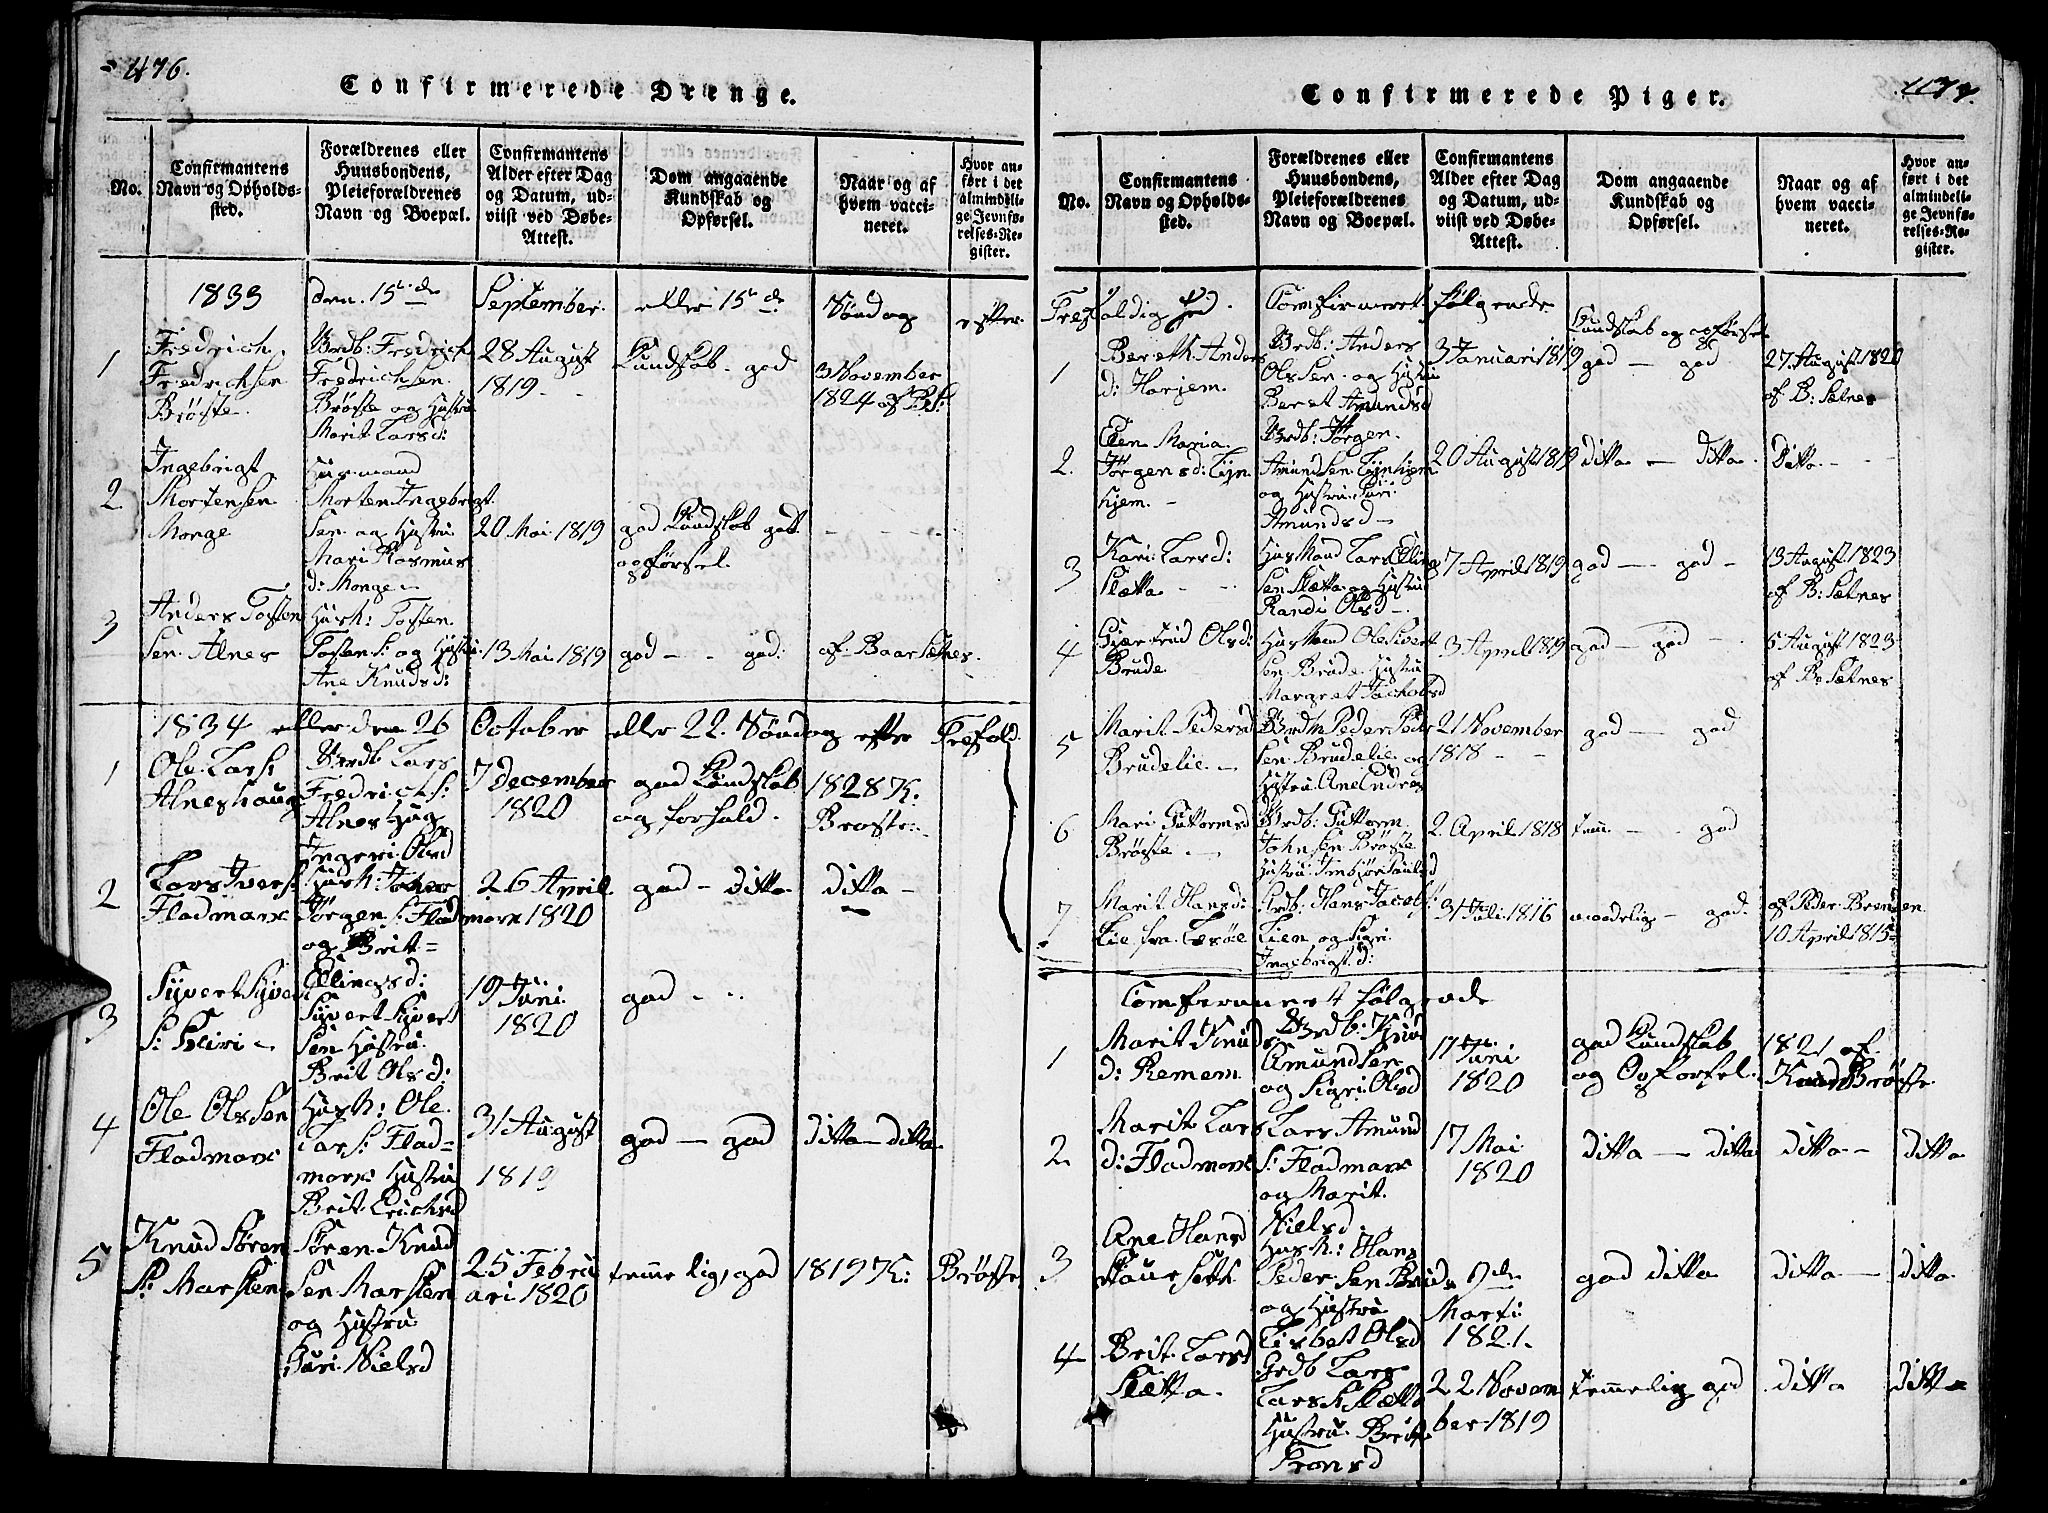 476.
Confirmerede Drenge.
No.
Confirmantens
Navn og Opholds-
sted.
Forældrenes eller
Huusbondens,
Pleieforældrenes
Navn og Boepæl.
Confirmantens
Alder efter Dag
og Datum, ud-
viist ved Døbe-
Attest.
Dom angaaende
Kundskab og
Opførsel.
Naar og af
hvem vacci-
neret.
Hvor an-
ført i det
almindeli-
ge Jevnfø-
relses-Re-
gister.
1833 den 15de September eller 15de Søndag efter
1
Fredrich
Fredrichsen
Brøste
Brdb: Fredrich
Fredrichsen
Brøste og Hustru
Marit Larsd:
28 August
1819
Kundskab god
3 November
1824 af
2
Ingebrigt
Mortensen
Monge
Husmand
Morten Ingebrigt
sen og Hustru
Mari Rasmus
d: Monge
20 Mai 1819
god Kundskab godt
opførsel
3
Anders Tosten
sen Alnes
Husm: Tosten
Tosens: og Hustru
Ane Knudsd:
13 Mai 1819
god - - god:
af Baar Sætnes.
1834 eller den 26 October eller 22. Søndag efter Trefold
1
Ole Lars:
Alneshaug
Brdb Lars
Fredrichs:
Alnes Haug
Ingeri Olsd
7 December
1820
god Kundskab
og forhold.
1828 K:
Brøste
2
Lars Ivers:
Fladmark
Husm: Iver
Jørgens: Flad
mark
og Brit
Ellingsd:
26 April
1820
god - ditto
ditto -
3
Syvert Syvert
s: Soleri
Syvert Syvert
sen Hustru
Brit Olsd:
19 Juni
1820
god
4
Ole Olssen
Fladmark
Husm: Ole
Lars: Flad=
mark Hustru
Brit Erichsd
31 August
1819
god - god
ditto - ditto
5
Knud Søren
s: Marsten
Søren Knud
sen Marsten
og Hustru
Guri Nielsd
25 Febru
ari 1820
temmelig, god
1819 K: Brøste
477.
Confirmerede Piger.
No.
Confirmantens
Navn og Opholds-
sted.
Forældrenes eller
Huusbondens,
Pleieforældrenes
Navn og Boepæl.
Confirmantens
Alder efter Dag
og Datum, ud-
viist ved Døbe-
Attest.
Dom angaaende
Kundskab og
Opførsel.
Naar og af
hvem vacci-
neret.
Hvor an-
ført i det
almindeli-
ge Jevnfø-
relses-Re-
gister.
Trefoldighed. Comfirmeret følgende
Kundskab og opførsel
1
Bereth Anders
d: Horjem
Brdb: Anders
Olssen og Hustru
Beret Amundsd
3 Januari 1819
god - god
27 August 1820
af B: Sætnes
2.
Elen Maria
Jørgensd:
hjem -
Brdb: Jørgen
Amundsen
og Hustru Guri
Amundsd -
20 August 1819
ditto - ditto
ditto -
3
Kari Larsd:
Slætta
Husmand Lars Elling
sen Slætta og Hustru
Randi Olsd -
7 April 1819
god - god -
13 August 1823
af B: Sætnes
4
Giertrud Olsd:
Brude
Husmand Ole Sivert
sen Brude Hustru
Margret Jachobsd
3 April 1819
god - god
5 August 1823
af B: Sætnes
5
Marit Pedersd
Brudelie -
Brdm Peder Peder
sen Brudelie og
Hustru Ane Andres
d:
21 November
1818 -
god - god
6
Mari Guttormsd
Brøste -
Brdb: Guttorm
Johnsen Brøste
Hustru Imbjør Paulsd
2. April 1818
tem. - god
7.
Marit Hansd:
Lie fra Lesøe
Brdb: Hans Jacobs:
Lien og Sigri
Ingebrigtd:
31 Juli 1816
maadelig - god.
af Peder
10 April 1815
Comfermeret følgende
1
Marit Knuds
d: Remem
Brdb: Knud
Amundsen
og Sigri Olsd
17
Juni
1820
god Kundskab
og Opførsel.
1821 af
Knud Brøste
2.
Marit Lars
d: Fladmark
Lars Amund
s: Fladmark
og Marit
Nielsd
17 Mai
1820
ditto - ditto
ditto -
ditto
3
Ane Hansd
Husm: Hans
Pedersen
og Hustru
Lisbet Olsd
9de
Marti
1821.
god ditto
ditto -
ditto
4
Brit Larsd
Slætta.
Grdb Lars
Lars: Slætta
Hustru Brit
Tronsd
22 Novem
ber 1819
temmelig god
ditto
ditto